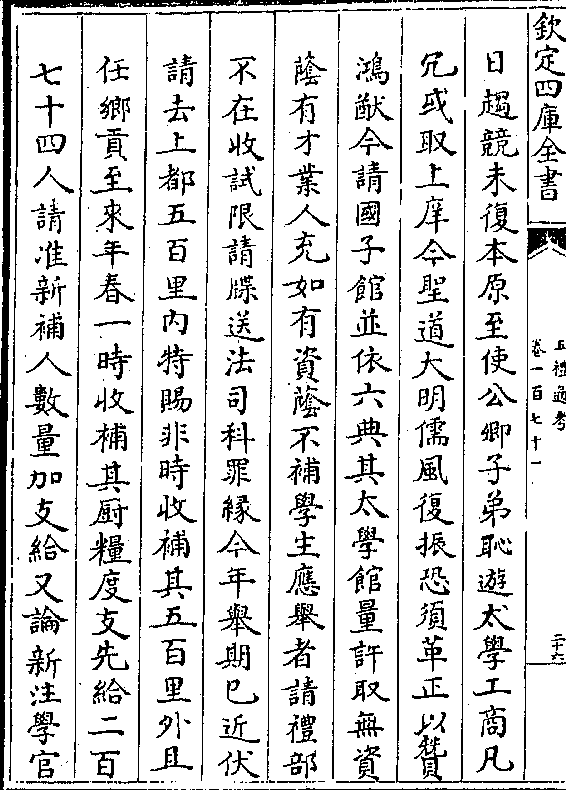 欽定四庫全書
五禮通考
卷一百七十一
二十六
日趨競未復本原至使公卿子弟恥遊太學工商凡
冗或取上庠今聖道大明儒風復振恐須革正以贊
鴻猷今請國子館並依六典其太學館量許取無資
蔭有才業人充如有資蔭不補學生應舉者請禮部
不在收試限請牒送法司科罪緣今年舉期已近伏
請去上都五百里内特賜非時收補其五百里外且
任鄉貢至來年春一時收補其厨糧度支先給二百
七十四人請准新補人數量加支給又論新注學官